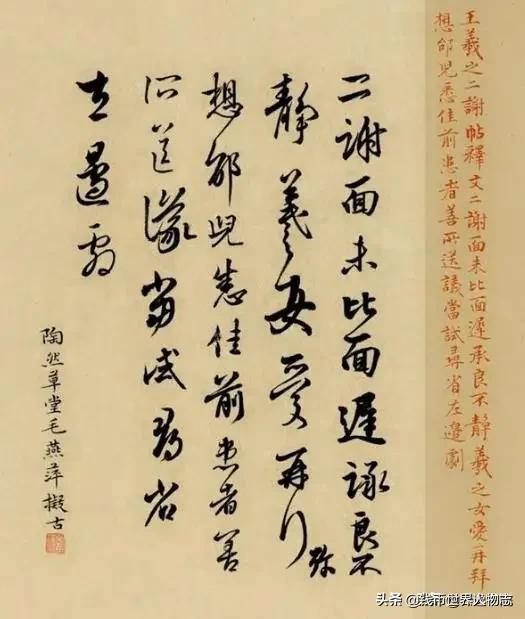 王羲之二謝帖釋文二謝面未比面遲承良不靜羲之女愛再拜
想邰兒悉佳前患者善所送議當試尋省左邊劇
二謝面未比面遲詠良不
靜羲之女愛再行弥
想邰兒悉佳前患者善
所送議當試尋省
左邊劇
陶然草堂毛燕萍擬古
头条 @世界人物志